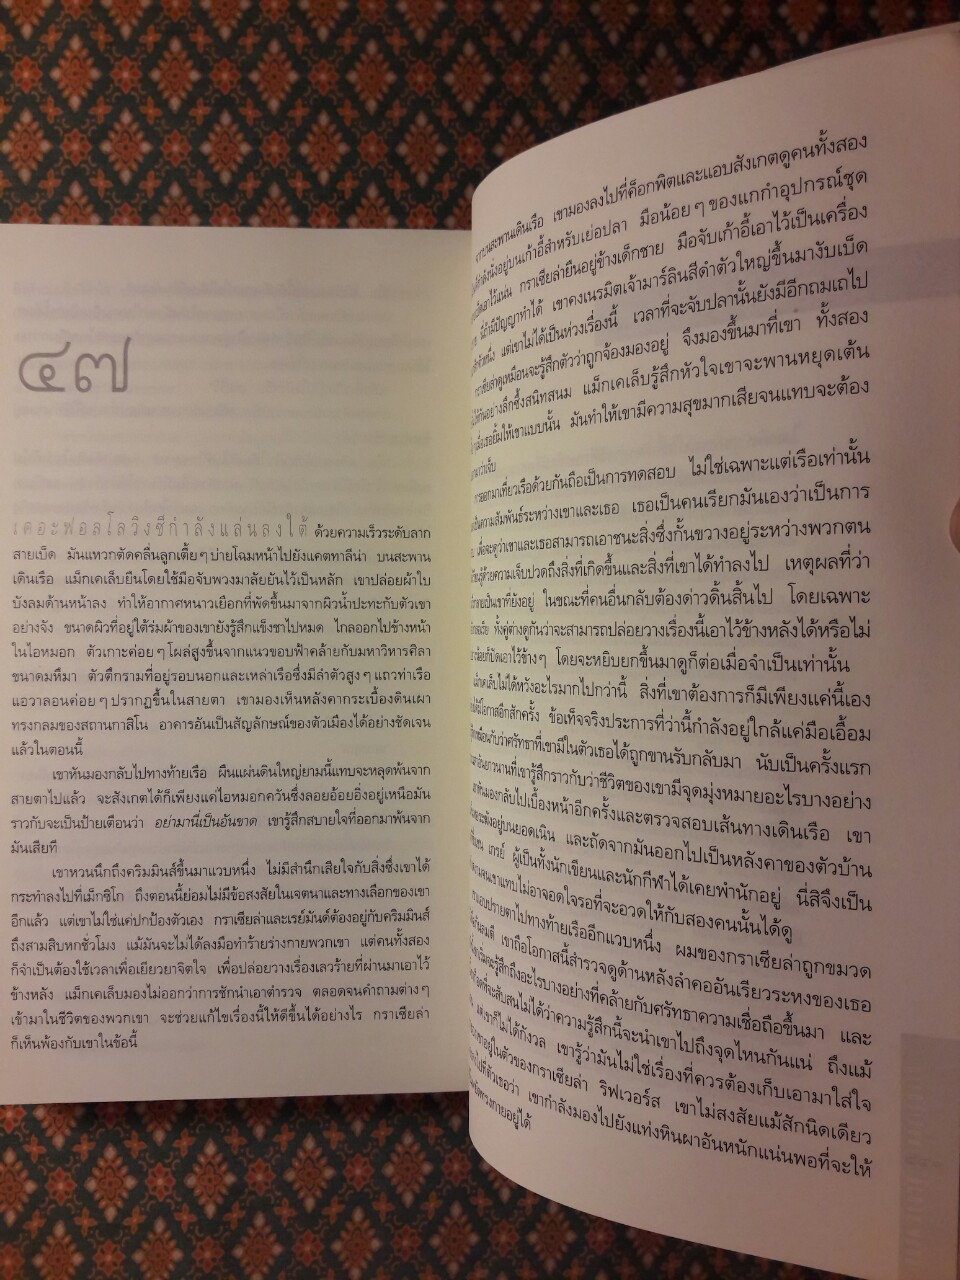 ๔๗
เดอะฟอลโลวิงซีกำลังแล่นลงใต้ ด้วยความเร็วระดับลาก
สายเบ็ด มันแหวกตัดคลื่นลูกเตี้ยๆ บ่ายโฉมหน้าไปยังแคตทาลีน่า บนสะพาน
เดินเรือ แม็กเคเล็บยืนโดยใช้มือจับพวงมาลัยยันไว้เป็นหลัก เขาปล่อยผ้าใบ
บังลมด้านหน้าลง ทำให้อากาศหนาวเยือกที่พัดขึ้นมาจากผิวน้ำปะทะกับตัวเขา
อย่างจัง ขนาดผิวที่อยู่ใต้ร่มผ้าของเขายังรู้สึกแข็งชาไปหมด ไกลออกไปข้างหน้า
ในไอหมอก ตัวเกาะค่อยๆ โผล่สูงขึ้นจากแนวขอบฟ้าคล้ายกับมหาวิหารศิลา
ขนาดมหึมา ตัวตึกรามที่อยู่รอบนอกและเหล่าเรือซึ่งมีลำตัวสูงๆ แถวท่าเรือ
แอวาลอนค่อยๆ ปรากฏขึ้นในสายตา เขามองเห็นหลังคากระเบื้องดินเผา
ทรงกลมของสถานกาสิโน อาคารอันเป็นสัญลักษณ์ของตัวเมืองได้อย่างชัดเจน
แล้วในตอนนี้
เขาหันมองกลับไปทางท้ายเรือ ผืนแผ่นดินใหญ่ยามนี้แทบจะหลุดพ้นจาก
สายตาไปแล้ว จะสังเกตได้ก็เพียงแค่ไอหมอกควันซึ่งลอยอ้อยอิ่งอยู่เหนือมัน
ราวกับจะเป็นป้ายเตือนว่า อย่ามานี่เป็นอันขาด เขารู้สึกสบายใจที่ออกมาพ้นจาก
มันเสียที
เขาหวนนึกถึงคริมมินส์ขึ้นมาแวบหนึ่ง ไม่มีสำนึกเสียใจกับสิ่งซึ่งเขาได้
กระทำลงไปที่เม็กซิโก ถึงตอนนี้ย่อมไม่มีข้อสงสัยในเจตนาและทางเลือกของเขา
อีกแล้ว แต่เขาไม่ใช่แค่ปกป้องตัวเอง กราเซียล่าและเรย์มันด์ต้องอยู่กับคริมมินส์
ถึงสามสิบหกชั่วโมง แม้มันจะไม่ได้ลงมือทำร้ายร่างกายพวกเขา แต่คนทั้งสอง
ก็จำเป็นต้องใช้เวลาเพื่อเยียวยาจิตใจ เพื่อปล่อยวางเรื่องเลวร้ายที่ผ่านมาเอาไว้
ข้างหลัง แม็กเคเล็บมองไม่ออกว่าการชักนำเอาตำรวจ ตลอดจนคำถามต่างๆ
เข้ามาในชีวิตของพวกเขา จะช่วยแก้ไขเรื่องนี้ให้ดีขึ้นได้อย่างไร กราเซียล่า
ก็เห็นพ้องกับเขาในข้อนี้
จากบนสะพานเดินเรือ เขามองลงไปที่ค็อกพิตและแอบสังเกตดูคนทั้งสอง
กำลังนั่งอยู่บนเก้าอี้สำหรับเย่อปลา มือน้อยๆ ของแกกำอุปกรณ์ชุด
ไว้แน่น กราเซียล่ายืนอยู่ข้างเด็กชาย มือจับเก้าอี้เอาไว้เป็นเครื่อง
นี่ถ้ามีปัญญาทำได้ เขาคงเนรมิตเจ้ามาร์ลินสีดำตัวใหญ่ขึ้นมางับเบ็ด
แต่เขาไม่ได้เป็นห่วงเรื่องนี้ เวลาที่จะจับปลานั้นยังมีอีกถมเถไป
กราเซียล่าดูเหมือนจะรู้สึกตัวว่าถูกจ้องมองอยู่ จึงมองขึ้นมาที่เขา ทั้งสอง
กันอย่างลึกซึ้งสนิทสนม แม็กเคเล็บรู้สึกหัวใจเขาจะพานหยุดเต้น
เมื่อเธอยิ้มให้เขาแบบนั้น มันทำให้เขามีความสุขมากเสียจนแทบจะต้อง
การออกมาเที่ยวเรือด้วยกันถือเป็นการทดสอบ ไม่ใช่เฉพาะแต่เรือเท่านั้น
เป็นความสัมพันธ์ระหว่างเขาและเธอ เธอเป็นคนเรียกมันเองว่าเป็นการ
เพื่อจะดูว่าเขาและเธอสามารถเอาชนะสิ่งซึ่งกั้นขวางอยู่ระหว่างพวกตน
รู้ด้วยความเจ็บปวดถึงสิ่งที่เกิดขึ้นและสิ่งที่เขาได้ทำลงไป เหตุผลที่ว่า
กลายเป็นเขาที่ยังอยู่ ในขณะที่คนอื่นกลับต้องด่าวดิ้นสิ้นไป โดยเฉพาะ
ทั้งคู่ต่างดูกันว่าจะสามารถปล่อยวางเรื่องนี้เอาไว้ข้างหลังได้หรือไม่
เอาไว้ข้างๆ โดยจะหยิบยกขึ้นมาดูก็ต่อเมื่อจำเป็นเท่านั้น
แม็กเคเล็บไม่ได้หวังอะไรมากไปกว่านี้ สิ่งที่เขาต้องการก็มีเพียงแค่นี้เอง
มีโอกาสอีกสักครั้ง ข้อเท็จจริงประการที่ว่านี้กำลังอยู่ใกล้แค่มือเอื้อม
เหมือนกับว่าศรัทธาที่เขามีในตัวเธอได้ถูกขานรับกลับมา นับเป็นครั้งแรก
ยาวนานที่เขารู้สึกราวกับว่าชีวิตของเขามีจุดมุ่งหมายอะไรบางอย่าง
เขาหันมองกลับไปเบื้องหน้าอีกครั้งและตรวจสอบเส้นทางเดินเรือ เขา
อยู่บนยอดเนิน และถัดจากมันออกไปเป็นหลังคาของตัวบ้าน
เกรย์ ผู้เป็นทั้งนักเขียนและนักกีฬาได้เคยพำนักอยู่ นี่สิจึงเป็น
เขาแทบไม่อาจอดใจรอที่จะอวดให้กับสองคนนั้นได้ดู
เขาแอบปรายตาไปทางท้ายเรืออีกแวบหนึ่ง ผมของกราเซียล่าถูกขมวด
เขาถือโอกาสนี้สำรวจดูด้านหลังลำคออันเรียวระหงของเธอ
รู้สึกถึงอะไรบางอย่างที่คล้ายกับศรัทธาความเชื่อถือขึ้นมา และ
ที่จะสับสนไม่ได้ว่าความรู้สึกนี้จะนำเขาไปถึงจุดไหนกันแน่ ถึงแม้
แต่เขาก็ไม่ได้กังวล เขารู้ว่ามันไม่ใช่เรื่องที่ควรต้องเก็บเอามาใส่ใจ
อยู่ในตัวของกราเซียล่า ริฟเวอร์ส เขาไม่สงสัยแม้สักนิดเดียว
ไปที่ตัวเธอว่า เขากำลังมองไปยังแท่งหินผาอันหนักแน่นพอที่จะให้
วางกายอยู่ได้